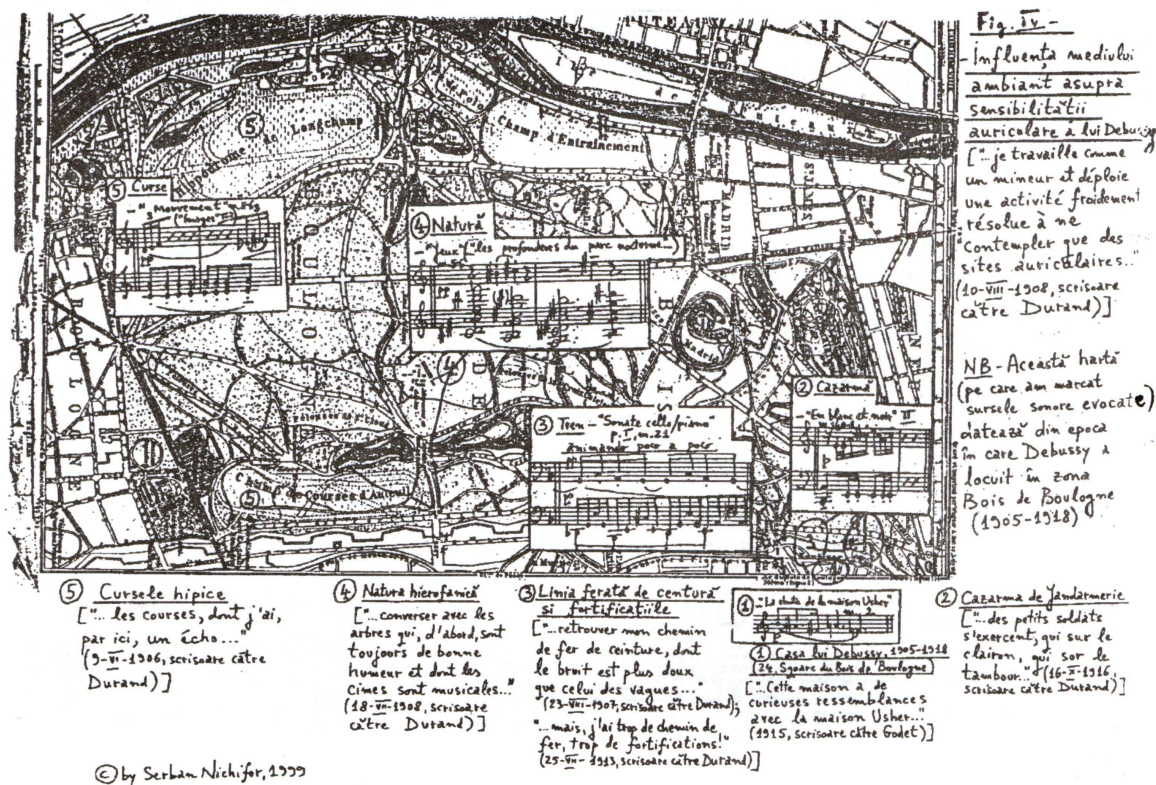 Fig. IV -
- Influența mediului
ambiant asupra
sensibilității
auriculare a lui Debussy
["...je travaille comme
un mineur et déploie
une activité froidement
résolue à ne
contempler que des
sites auriculaires..."
(10-VIII-1908, scrisoare
către Durand)]
NB - Această hartă
(pe care am marcat
sursele sonore evocate)
datează din epoca
în care Debussy a
locuit în zona
Bois de Boulogne
(1905-1918)
PUTEAUX
Hippodrome de Longchamp
Champ d'Entraînement
⑤
⑤ Curse
- "Mouvement"
("Images")
④ Natură
- "Jeux" ("les profondeurs du parc nocturne...")
④
BOULOGNE
BOIS
DE
Madrid
② Cazarmă
- "En blanc et noir" II
③ Tren - "Sonate cello/piano"
p. I, m. 21
animando poco a poco
Champ de Courses d'Auteuil
⑤
⑤ Cursele hipice
["...les courses, dont j'ai,
par ici, un écho..."
(9-VI-1906, scrisoare către
Durand)]
④ Natura hierofanică
["...converser avec les
arbres qui, d'abord, sont
toujours de bonne
humeur et dont les
cimes sont musicales..."
(18-VII-1908, scrisoare
către Durand)]
③ Linia ferată de centură
și fortificațiile
["...retrouver mon chemin
de fer de ceinture, dont
le bruit est plus doux
que celui des vagues..."
(23-VIII-1907, scrisoare către Durand);
"...mais, j'ai trop de chemin de
fer, trop de fortifications!"
(25-VII-1913, scrisoare către Durand)]
① - "La chute de la maison Usher"
m. 2
① Casa lui Debussy, 1905-1918
(24, Sqoare du Bois de Boulogne)
["...Cette maison a de
curieuses ressemblances
avec la maison Usher..."
(1915, scrisoare către Godet)]
② Cazarma de Jandarmerie
["...des petits soldats
s'exercent, qui sur le
clairon, qui sur le
tambour..." (16-X-1916,
scrisoare către Durand)]
© by Serban Nichifor, 1999